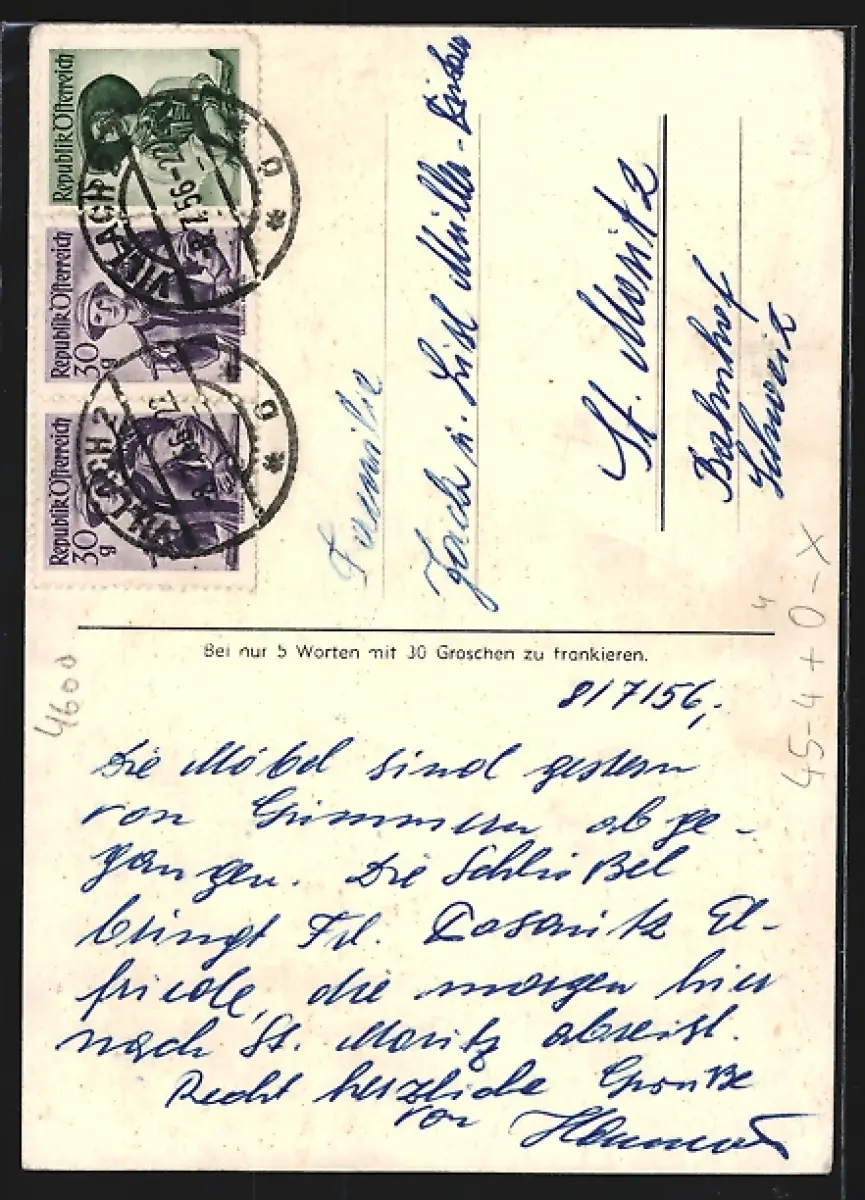 Republik Österreich
Republik Österreich
30
g
Republik Österreich
30
g
VILLACH 2
8.7.56-20
* g *
VILLACH 2
8.7.56-20
* g *
Familie
u. Lisl Müller-
St. Moritz
Bahnhof
Schweiz
Bei nur 5 Worten mit 30 Groschen zu frankieren.
4600
45-4+0-X
4
8/7/56,-
Die Möbel sind gestern
von abge-
gangen. Die Schlüßel
bringt Frl. El-
friede, die morgen hier
nach St. Moritz abreist.
Recht herzliche Grüße
von